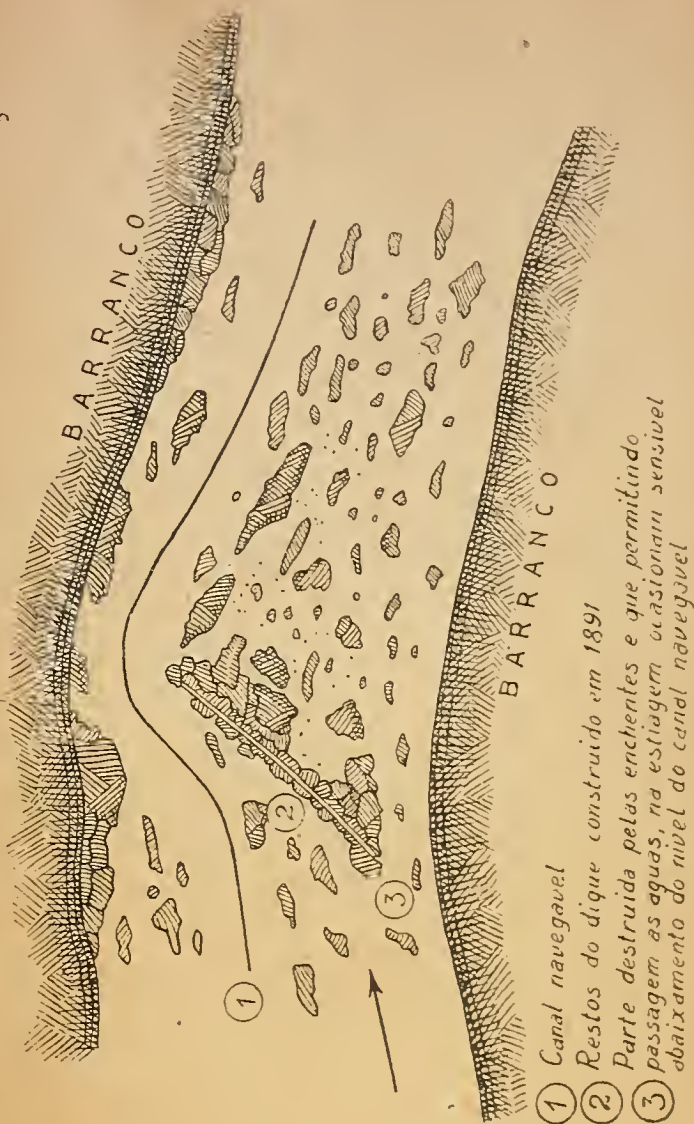 BARRANCO
BARRANCO
1
2
3
1 Canal navegavel
2 Restos do dique construido em 1891
Parte destruida pelas enchentes e que permitindo
3 passagem as aguas, na estiagem ocasionam sensivel
abaixamento do nivel do canal navegavel